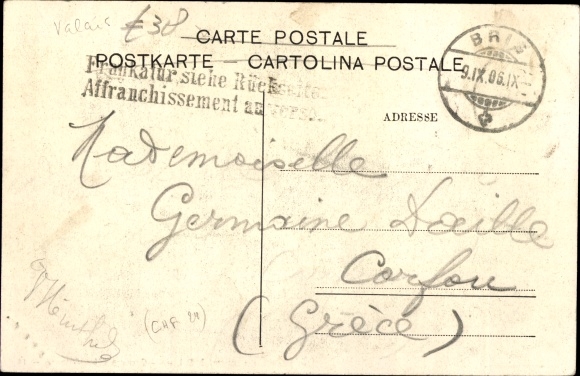 Valais €38
CARTE POSTALE
POSTKARTE — CARTOLINA POSTALE
Frankatur siehe Rückseite.
Affranchissement au verso.
BRI
9.IX.06.IX
ADRESSE
Mademoiselle
Germaine
Corfou
(Grèce)